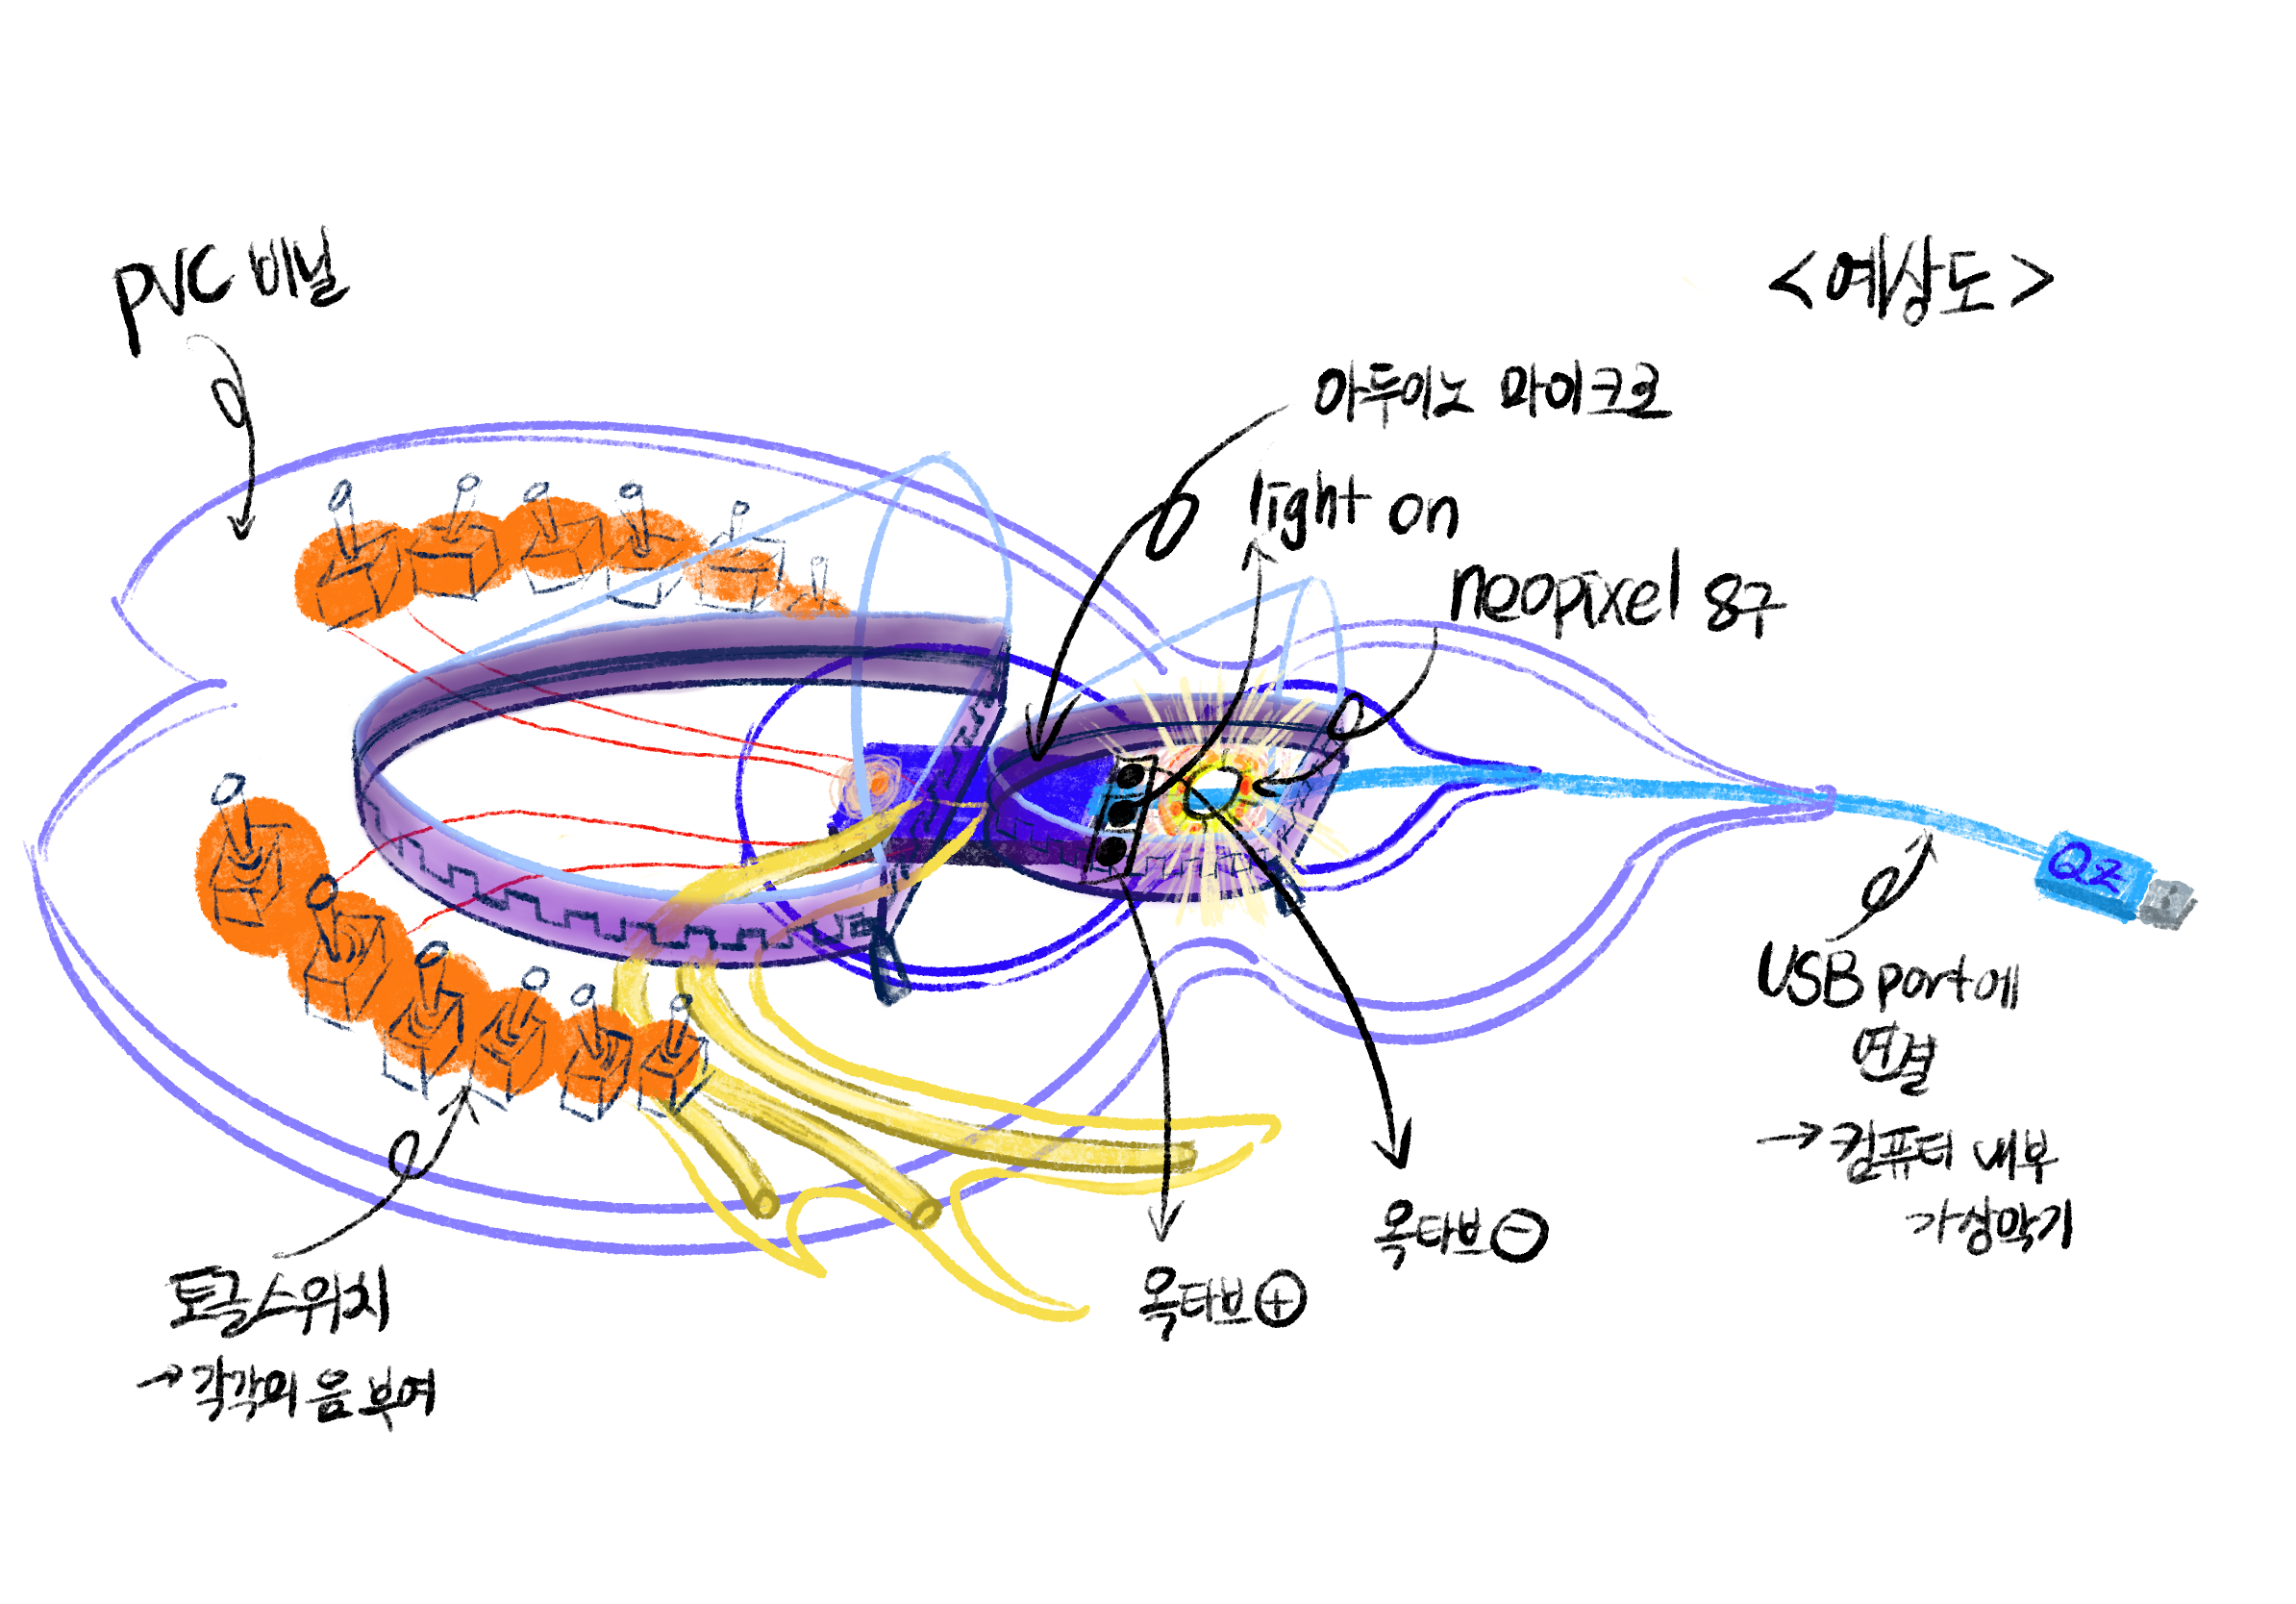 PVC 비닐
<예상도>
아두이노 마이크로
light on
neopixel 8구
QZ
USB port에
연결
→ 컴퓨터 내부
가상악기
옥타브⊖
옥타브⊕
토글스위치
→ 각각의 음 부여